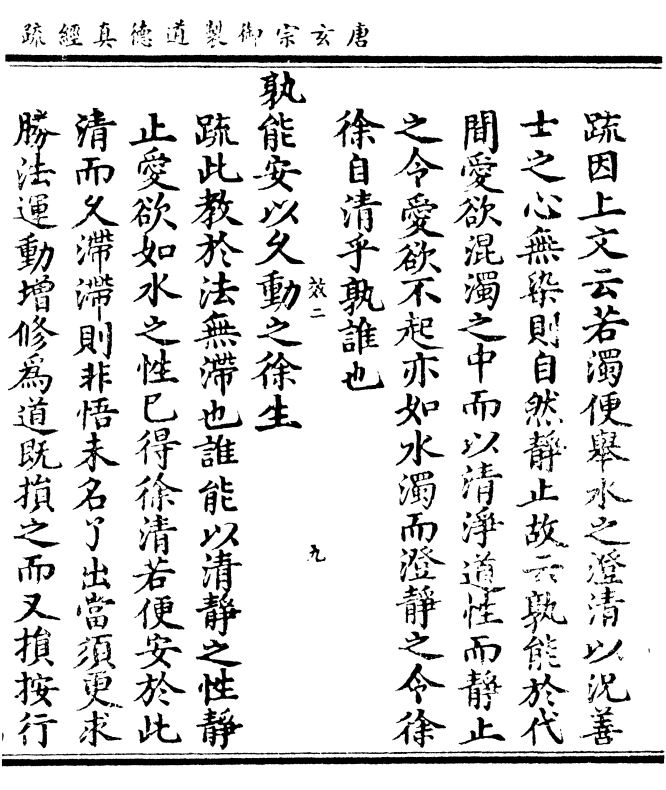 唐玄宗御製道德真經疏
疏因上文云若濁便舉水之澄清以況善
士之心無染則自然靜止故云孰能於代
間愛欲混濁之中而以清淨道性而靜止
之令愛欲不起亦如水濁而澄靜之令徐
徐自清乎孰誰也
效二
九
孰能安以久動之徐生
疏此教於法無滯也誰能以清靜之性靜
止愛欲如水之性已得徐清若便安於此
清而久滯滯則非悟未名了出當須更求
勝法運動增修為道既損之而又損按行